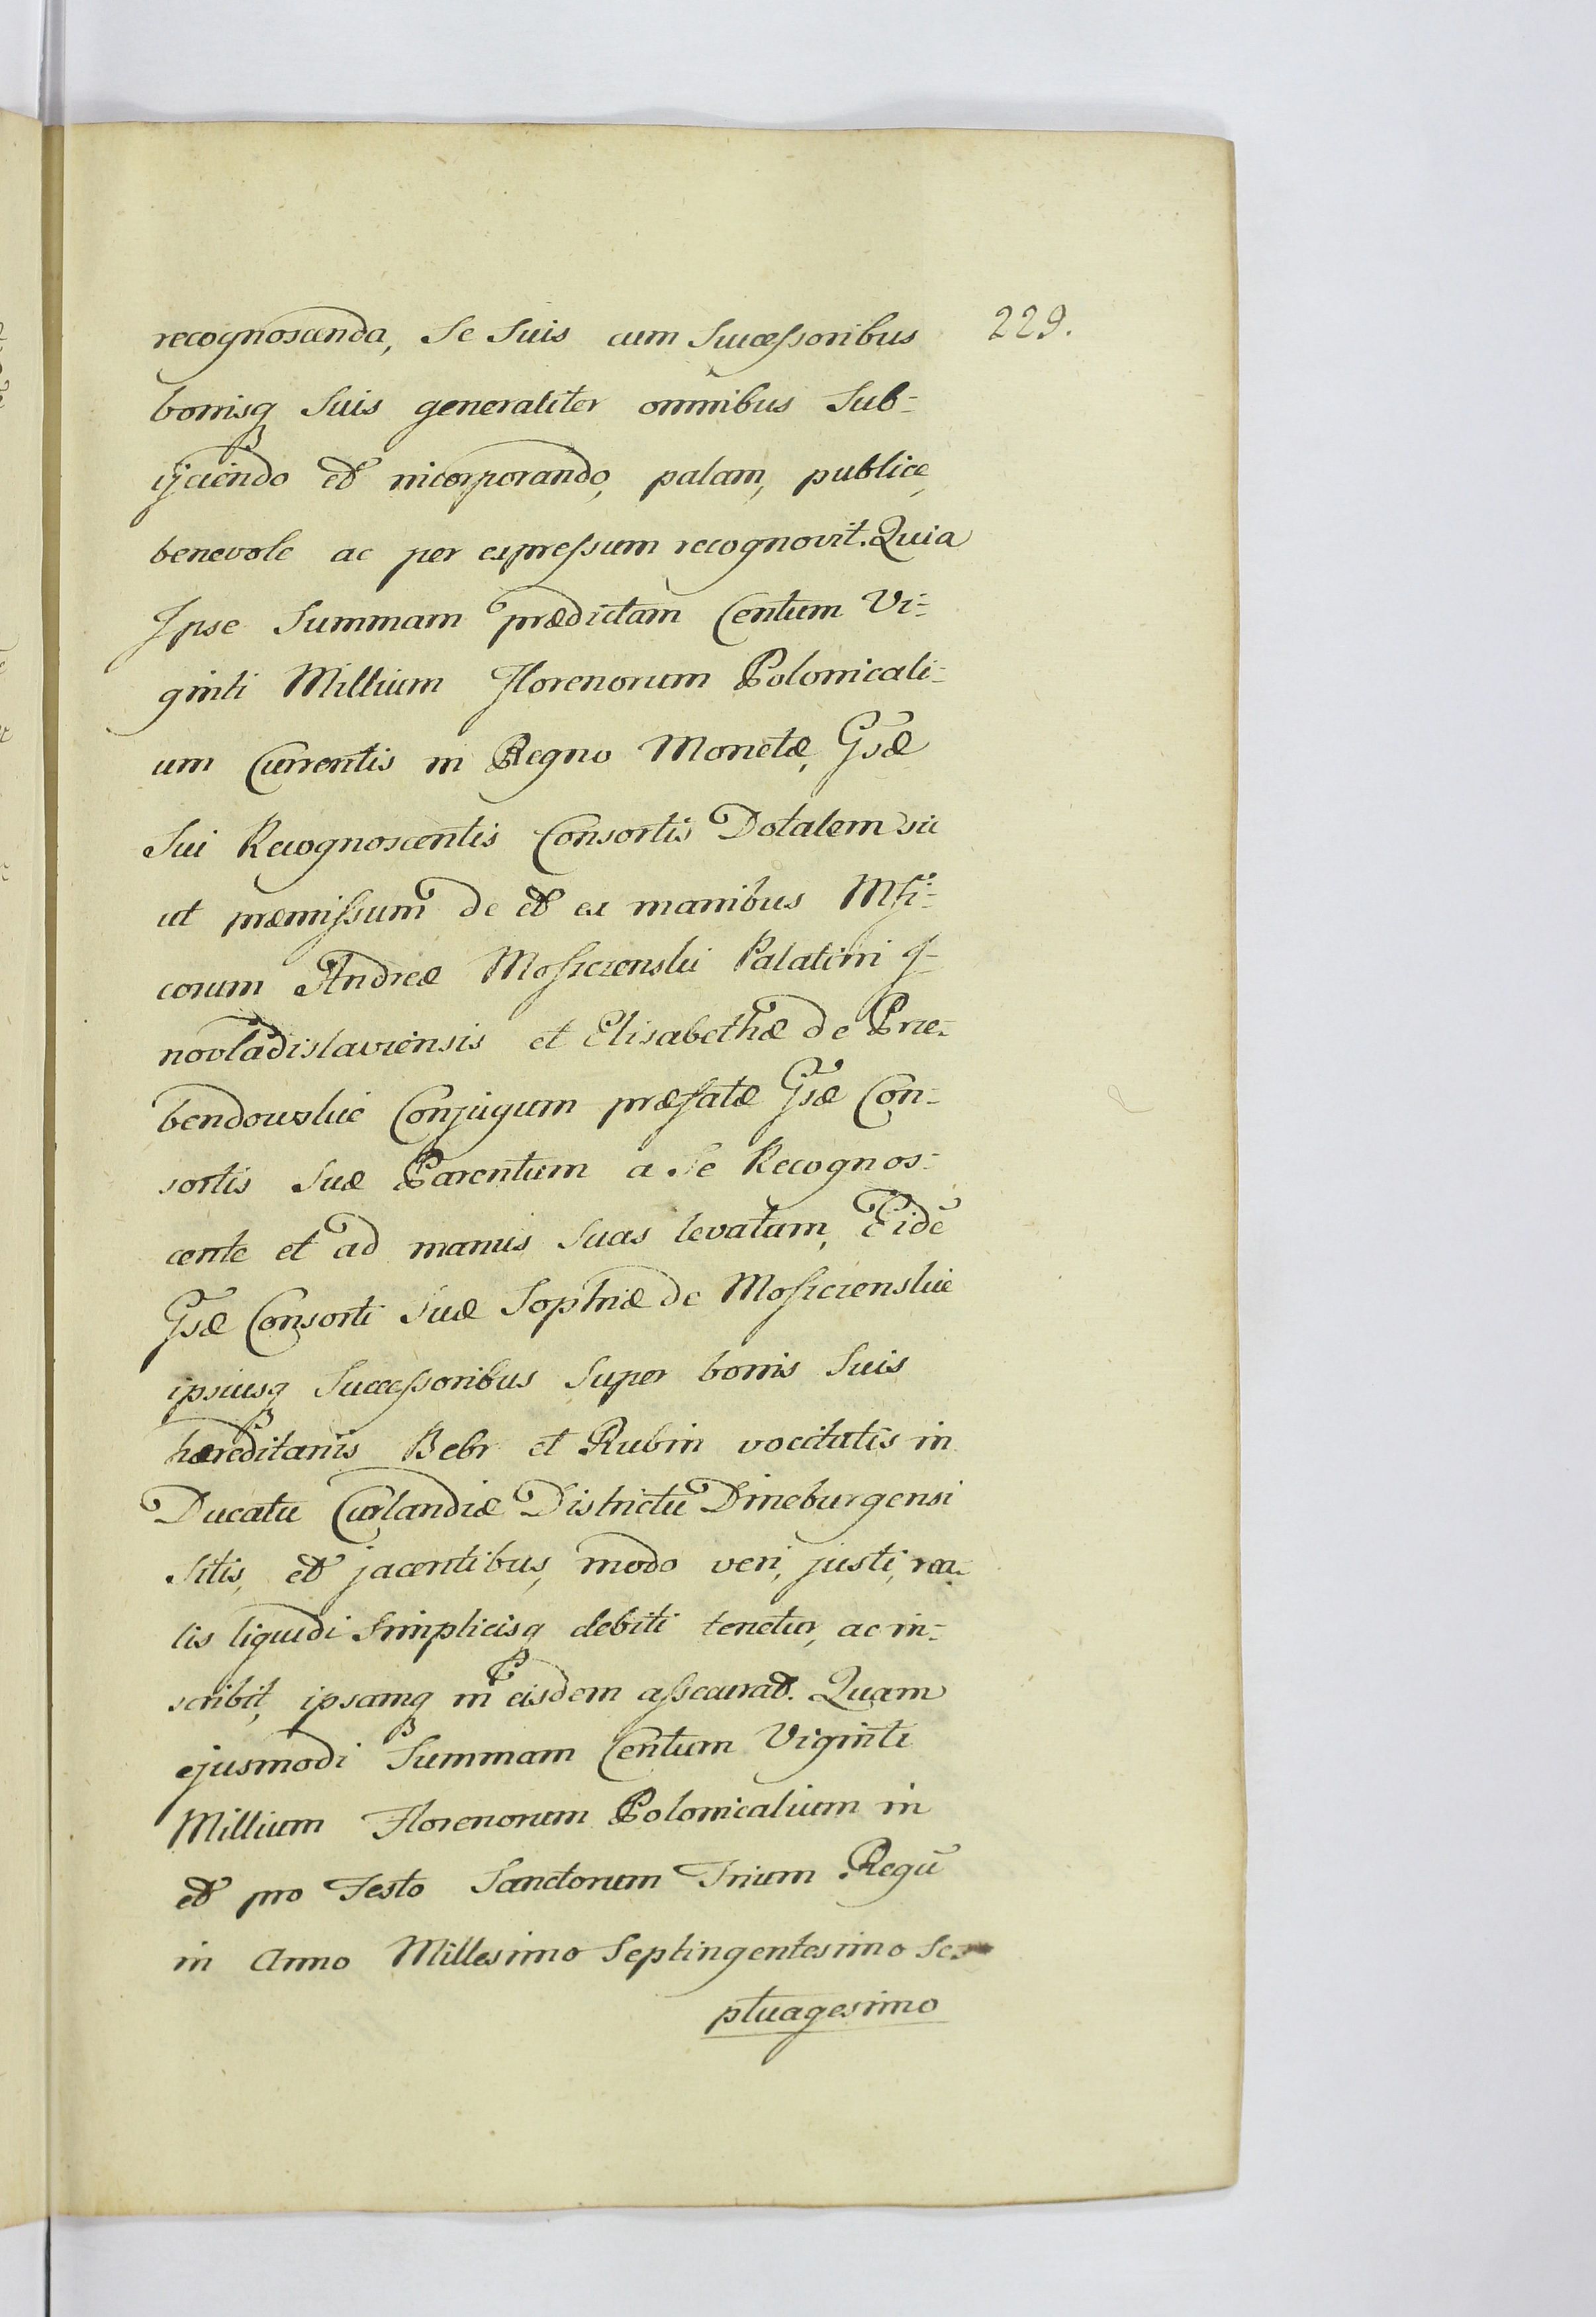 229.
recognoscenda, Se Suis cum Successoribus
bonisq Suis generaliter omnibus Sub=
ijciendo et incorporando, palam, publice,
benevole ac per expressum recognovit. Quia
Ipse Summam prædictam Centum Vi=
ginti Millium Florenorum Polonicali=
um Currentis in Regno Monetæ, Gsæ
Sui Recognoscentis Consortis Dotalem sic
ut præmissum de et ex manibus Mfi=
corum Andreæ Moszczenski Palatini J=
novladislaviensis et Elisabethæ de Prze=
bendowskie Conjugum præfatæ Gsæ Con=
sortis Suæ Parentum a Se Recognos=
cente et ad manus Suas levatam, Eidē
Gsæ Consorti Suæ Sophiæ de Moszczenskie
ipsiusq Successoribus Super bonis Suis
hæreditariis Bebr et Rubin vocitatis in
Ducatu Curlandiæ Districtu Dineburgensi
Sitis, et jacentibus, modo veri, justi, rea=
lis liquidi Simplicisq debiti tenetur, ac in=
scribit, ipsamq in eisdem assecurat. Quam
ejusmodi Summam Centum Viginti
Millium Florenorum Polonicalium in
et pro Festo Sanctorum Trium Regū
in Anno Millesimo Septingentesimo Se=
ptuagesimo